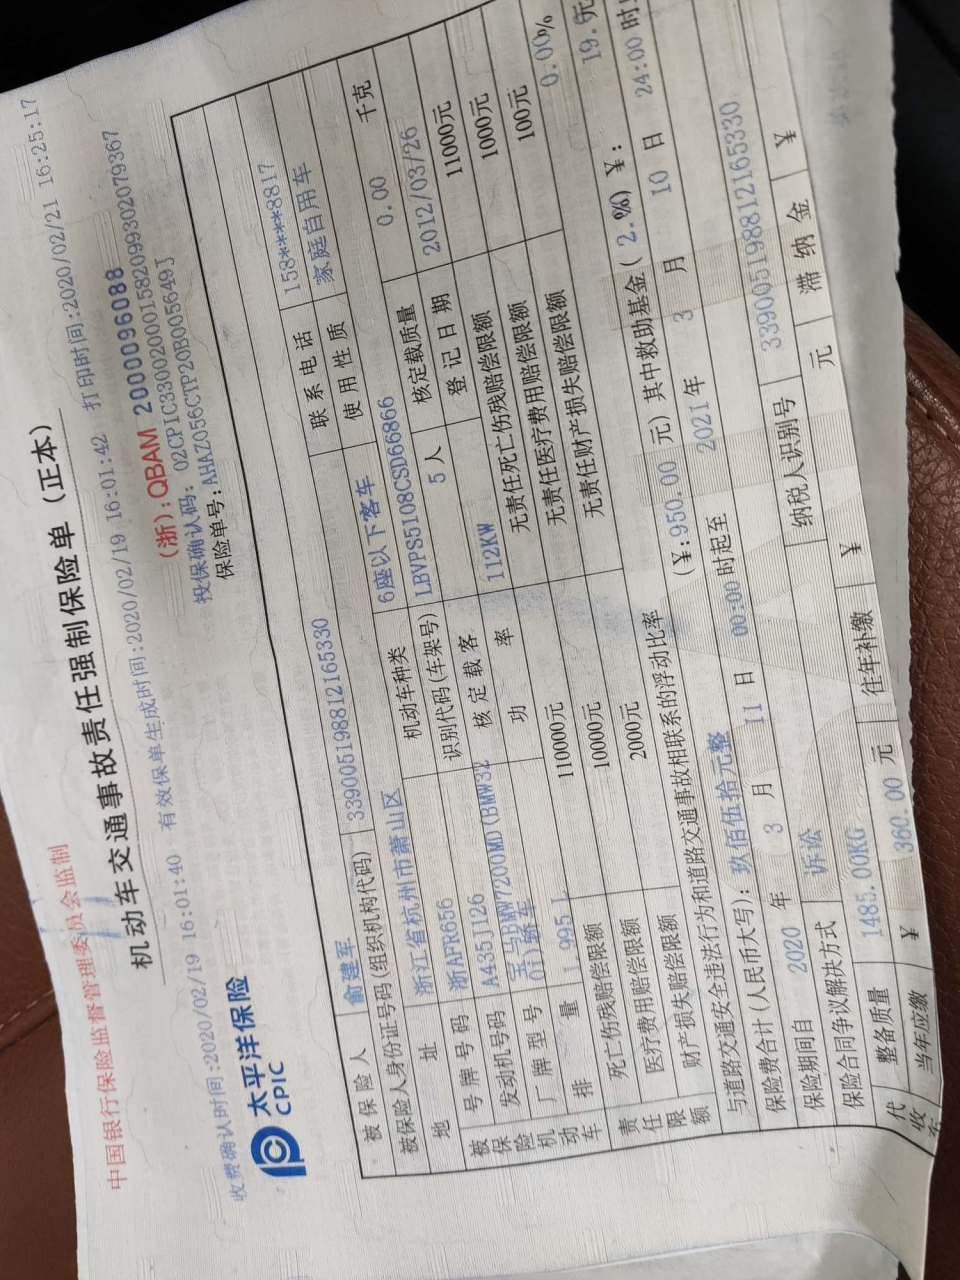 中国银行保险监督管理委员会监制
机动车交通事故责任强制保险单（正本）
收费确认时间:2020/02/19 16:01:40 有效保单生成时间:2020/02/19 16:01:42 打印时间:2020/02/21 16:25:17
太平洋保险
CPIC
(浙)：QBAM 200000096088
投保确认码：02CPIC330020000158209930207​9367
保险单号：AHAZ056CTP20B005649J
被保险人 俞建军
被保险人身份证号码(组织机构代码) 339005198812165330
地址 浙江省杭州市萧山区 联系电话 158****8817
被保险机动车
号牌号码 浙APR656 机动车种类 6座以下客车 使用性质 家庭自用车
发动机号码 A435J126 识别代码(车架号) LBVPS5108CSD66866
厂牌型号 宝马BMW7200MD(BMW32 核定载客 5人 核定载质量 0.00 千克
01)轿车
排量 1.995 L 功率 112KW 登记日期 2012/03/26
责任限额
死亡伤残赔偿限额 110000元 无责任死亡伤残赔偿限额 11000元
医疗费用赔偿限额 10000元 无责任医疗费用赔偿限额 1000元
财产损失赔偿限额 2000元 无责任财产损失赔偿限额 100元
与道路交通安全违法行为和道路交通事故相联系的浮动比率 0.00%
保险费合计(人民币大写)：玖佰伍拾元整 (¥:950.00 元) 其中救助基金( 2.%) ¥: 19.元
保险期间自 2020 年 3 月 11 日 00:00 时起至 2021年 3 月 10 日 24:00 时
保险合同争议解决方式 诉讼
代收车
整备质量 1485.00KG 纳税人识别号 339005198812165330
当年应缴 ¥ 360.00 元 往年补缴 ¥ 元 滞纳金 ¥